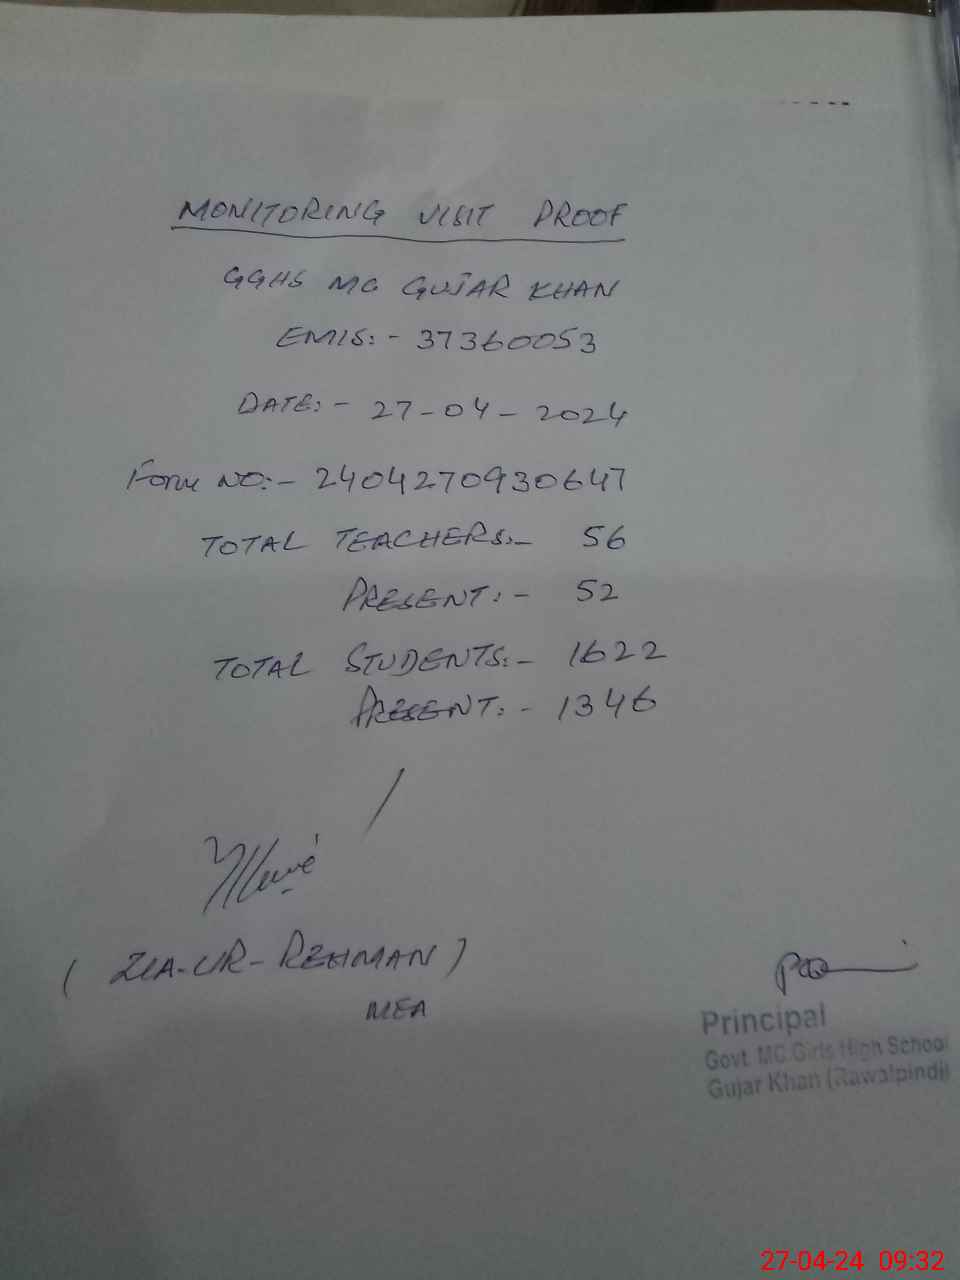 MONITORING VISIT PROOF
GGHS MC GUJAR KHAN
EMIS:- 37360053
DATE:- 27-04-2024
Form NO:- 2404270930647
TOTAL TEACHERS:- 56
PRESENT:- 52
TOTAL STUDENTS:- 1622
PRESENT:- 1346
(ZIA-UR-REHMAN)
MEA
Principal
Govt. MC Girls High School
Gujar Khan (Rawalpindi)
27-04-24 09:32